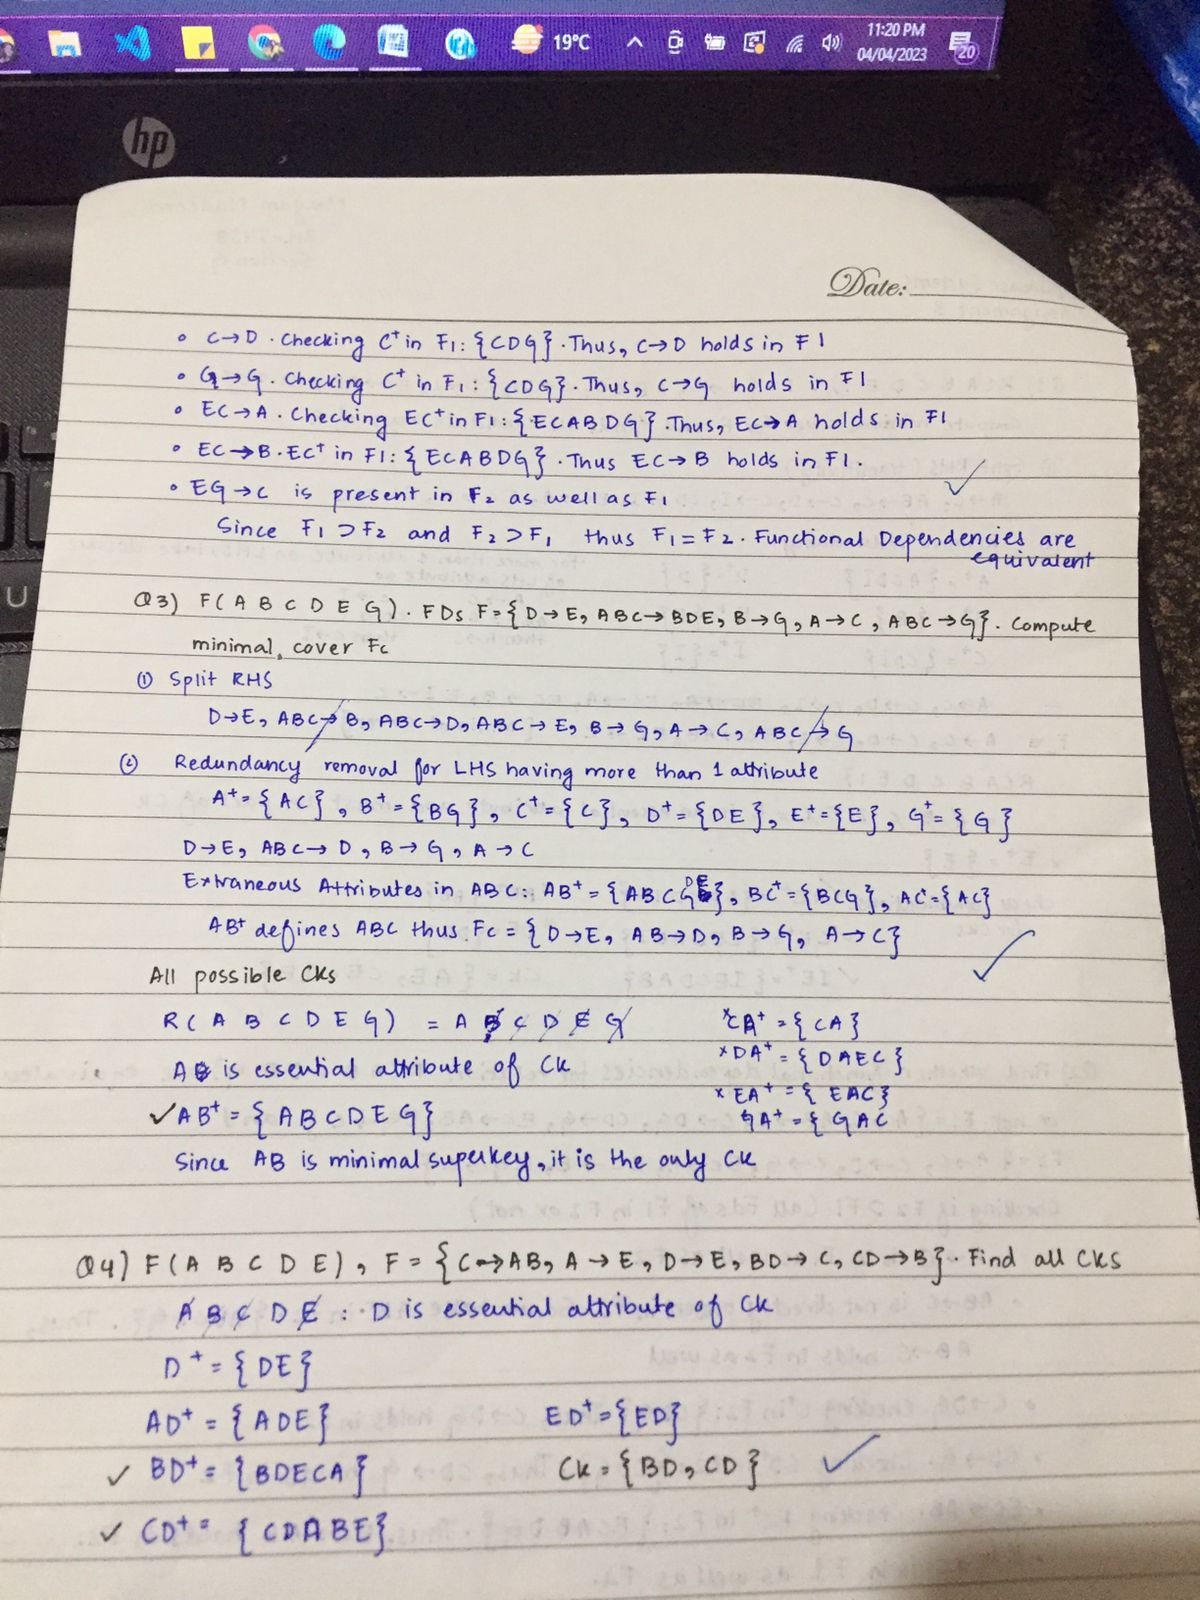 19°C
11:20 PM
04/04/2023
20
hp
U
Date:
• C→D . Checking C⁺ in F1: {CDG} . Thus, C→D holds in F1
• G→G . Checking C⁺ in F1: {CDG} . Thus, C→G holds in F1
• EC→A . Checking EC⁺ in F1: {ECABDG} . Thus, EC→A holds in F1
• EC→B . EC⁺ in F1: {ECABDG} . Thus EC→B holds in F1.
• EG→C is present in F2 as well as F1
Since F1 ⊃ F2 and F2 ⊃ F1 thus F1 = F2 . Functional Dependencies are
equivalent
Q3) F(A B C D E G) . FDs F={D→E, ABC→BDE, B→G, A→C, ABC→G} . Compute
minimal cover Fc
① Split RHS
D→E, ABC→B, ABC→D, ABC→E, B→G, A→C, ABC→G
② Redundancy removal for LHS having more than 1 attribute
A⁺={AC}, B⁺={BG}, C⁺={C}, D⁺={DE}, E⁺={E}, G⁺={G}
D→E, ABC→D, B→G, A→C
Extraneous Attributes in ABC: AB⁺={ABCGDE}, BC⁺={BCG}, AC⁺={AC}
AB⁺ defines ABC thus Fc = {D→E, AB→D, B→G, A→C}
All possible CKs
R(A B C D E G) = A B C D E G
A is essential attribute of CK
✓AB⁺ = {ABCDEG}
×CA⁺ = {CA}
×DA⁺ = {DAEC}
×EA⁺ = {EAC}
GA⁺ = {GAC
Since AB is minimal superkey, it is the only CK
Q4) F(A B C D E), F = {C→AB, A→E, D→E, BD→C, CD→B} . Find all CKs
A B C D E : D is essential attribute of CK
D⁺ = {DE}
AD⁺ = {ADE}
ED⁺={ED}
✓ BD⁺ = {BDECA}
CK = {BD, CD}
✓ CD⁺ = {CDABE}